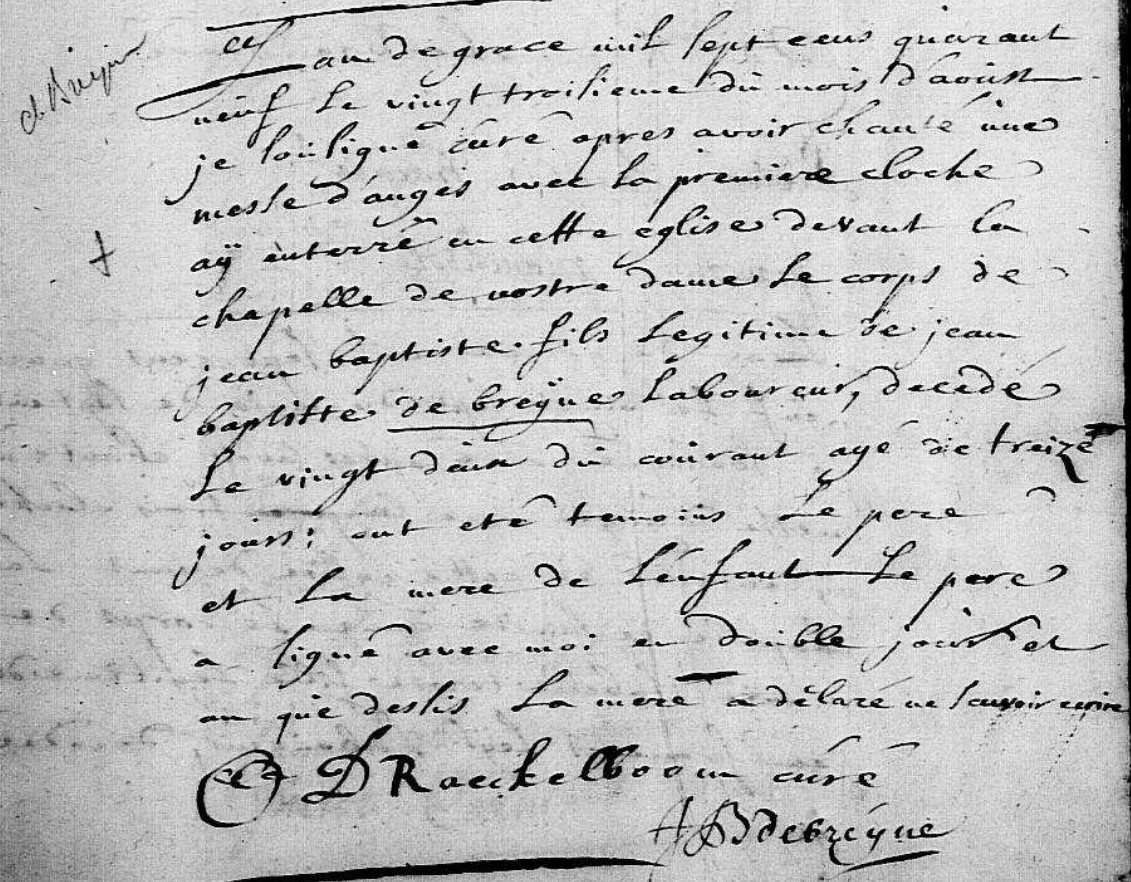 de Breyne
L'an de grace mil sept cens quarant
neuf le vingt troisieme du mois d'aoust
je soussigné curé apres avoir chanté une
messe d'anges avec la premiere cloche
aÿ enterré en cette eglise devant la
chapelle de nostre dame le corps de
jean baptiste fils legitime de jean
baptiste de breÿne laboureur, decedé
le vingt deux du courant agé de treize
jours; ont eté temoins le pere
et la mere de l'enfant le pere
a signé avec moi en double jour et
an que dessus la mere a délaré ne sauvoir ecrire
D Raeckelboom curé
JB debreyne